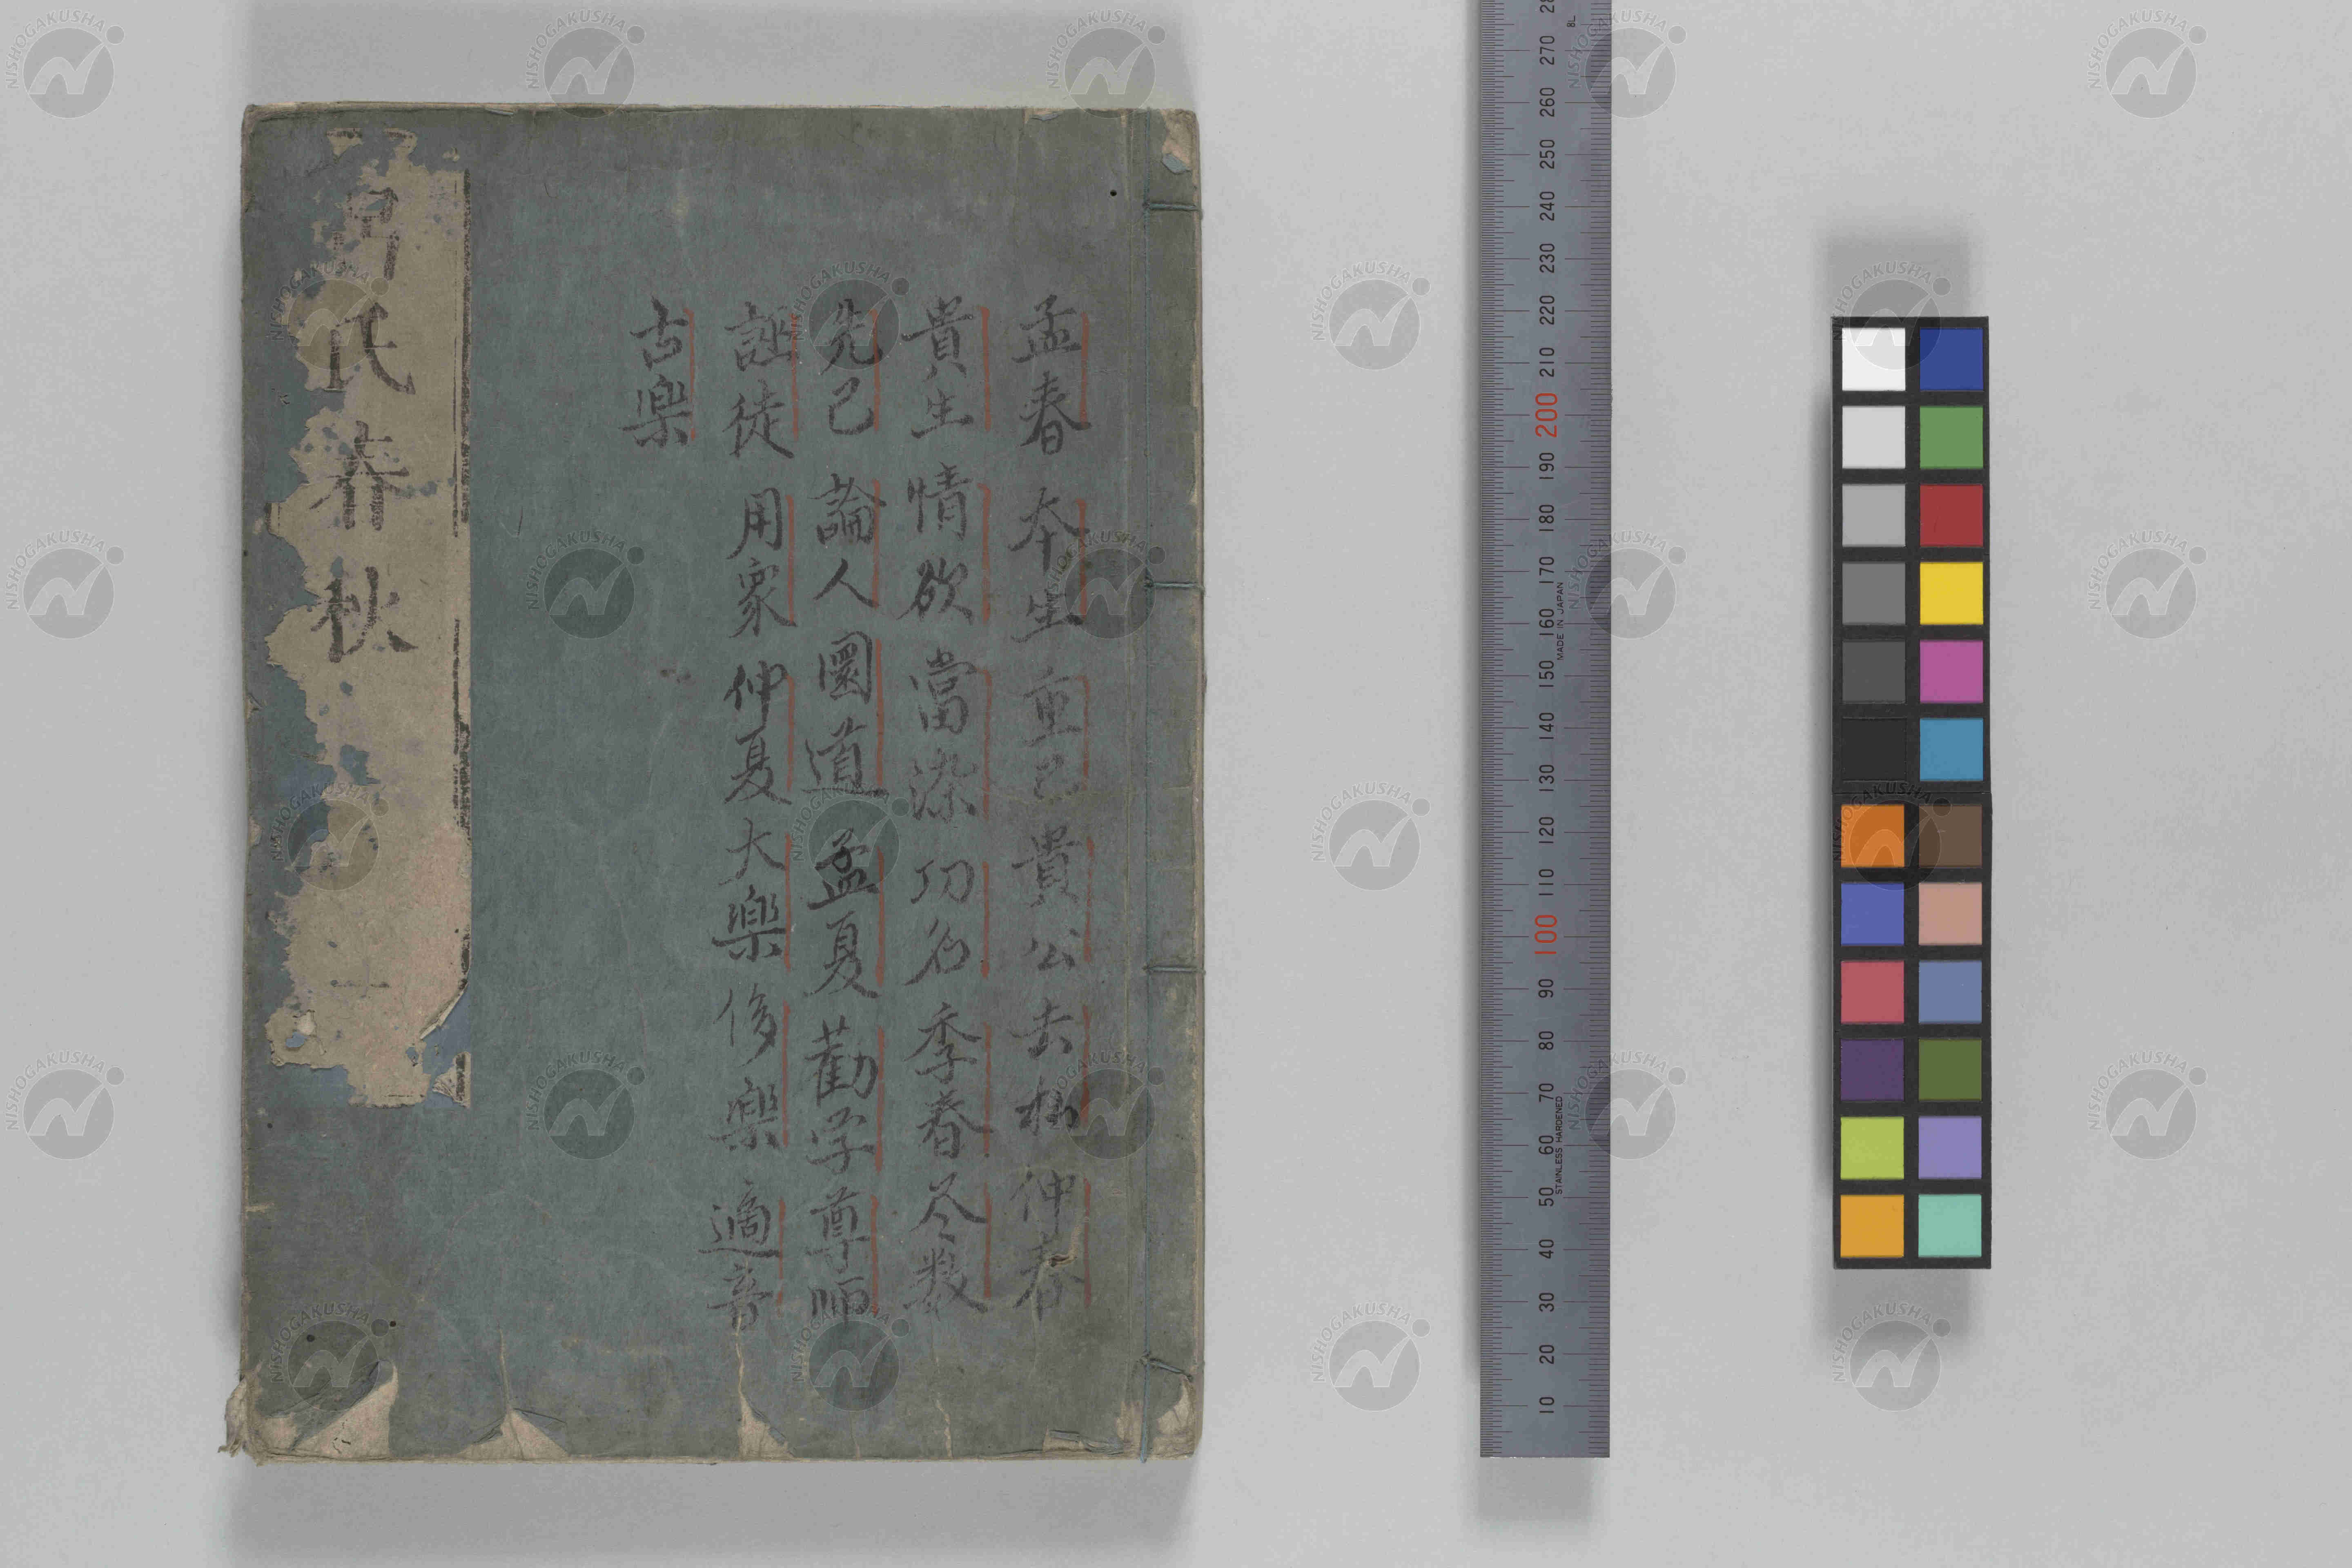 孟春 本生 重己 貴公 去私 仲春
貴生 情欲 當染 功名 季春 尽数
先己 論人 圜道 孟夏 勸学 尊師
誣徒 用衆 仲夏 大樂 侈樂 適音
古樂
呂氏春秋
270 260 250 240 230 220 210 200 190 180 170 160 150 140 130 120 110 100 90 80 70 60 50 40 30 20 10
MADE IN JAPAN
STAINLESS HARDENED
NISHOGAKUSHA